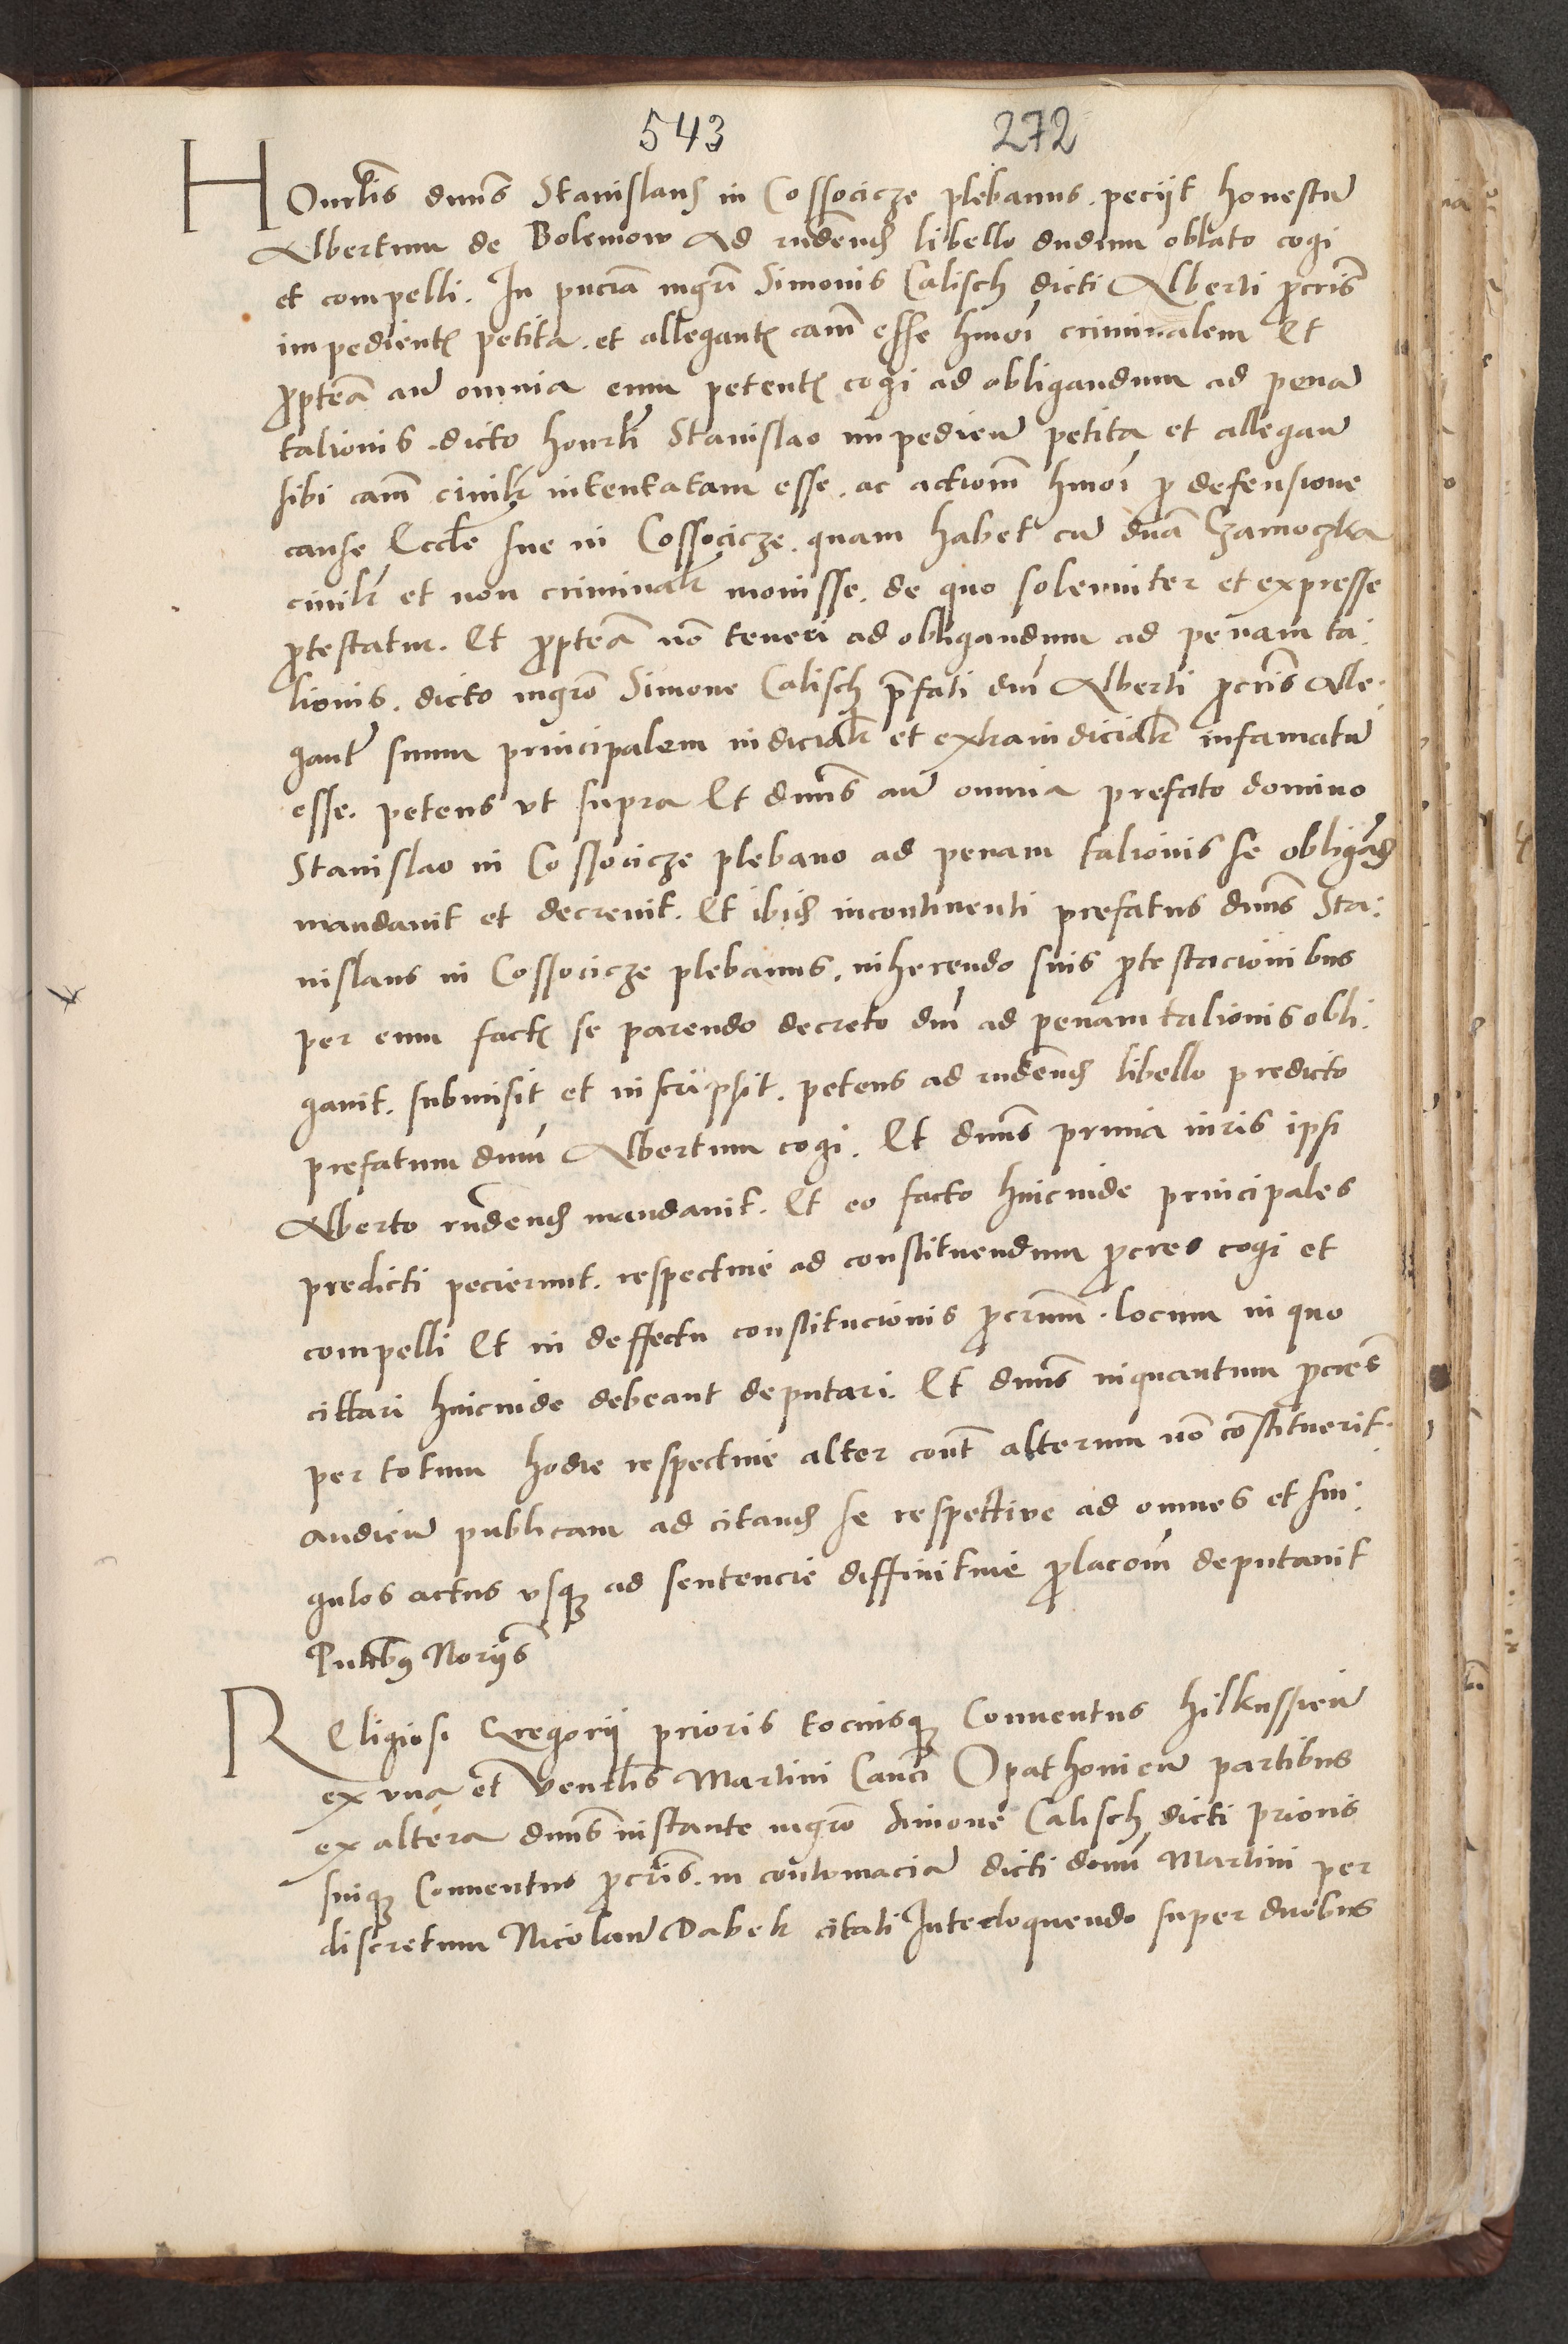 543 272
HOnrlis dnus Stanislaus in Cossocicze plebanus. peciit honestu
Albertum de Bolemow Ad rndend libello dudum oblato cogi
et compelli. In pnciam mgri Simonis Calisch dicti Alberti procris
impedient petita. et allegant cam esse hmoi criminalem Et
proptea an omnia eum petent cogi ad obligandum ad pena
talionis. dicto honrli Stanislao impedien petita et allegan
sibi cam civilr intentatam esse. ac actiom hmoi pro defensione
cause Eccle sue in Cossocicze. quam habet cu dna Czarnoczka
civilr et non criminalr movisse. de quo solemniter et expresse
protestatur. Et proptea no teneri ad obligandum ad penam ta:
lionis. dicto mgro Simone Calisch prfati dni Alberti procris Alle:
gant suum principalem iudicialr et extraiudicialr infamatu
esse. petens ut supra Et dnus an omnia prefato domino
Stanislao in Cossocicze plebano ad penam talionis se obligand
mandavit et decrevit. Et ibid incontinenti prefatus dnus Sta:
nislaus in Cossocicze plebanus. inherendo suis protestacionibus
per eum fact se parendo decreto dni ad penam talionis obli:
gavit. submisit et inscripsit. petens ad rndend libello predicto
prefatum dnm Albertum cogi. Et dnus primia iuris ipsi
Alberto rndend mandavit. Et eo facto hincinde principales
predicti pecierunt. respective ad constituendum procres cogi et
compelli Et in deffectu constitucionis procrum. locum in quo
cittari hincinde debeant deputari. Et dnus inquantum procres
per totum hodie respective alter cont alterum no constituerit.
audien publicam ad citand se respective ad omnes et sin:
gulos actus usque ad sentencie diffinitive prolacom deputavit
Pntibus Noriis
REligiosi Gregorii prioris tociusque Conventus hilkussien
ex una et Venrlis Martini Canci Opathovien partibus
ex altera dnus instante mgro Simone Calisch dicti prioris
suique Conventus procris. in contumacia dicti domi Martini per
discretum Nicolau Dabek citati Interloquendo super duobus